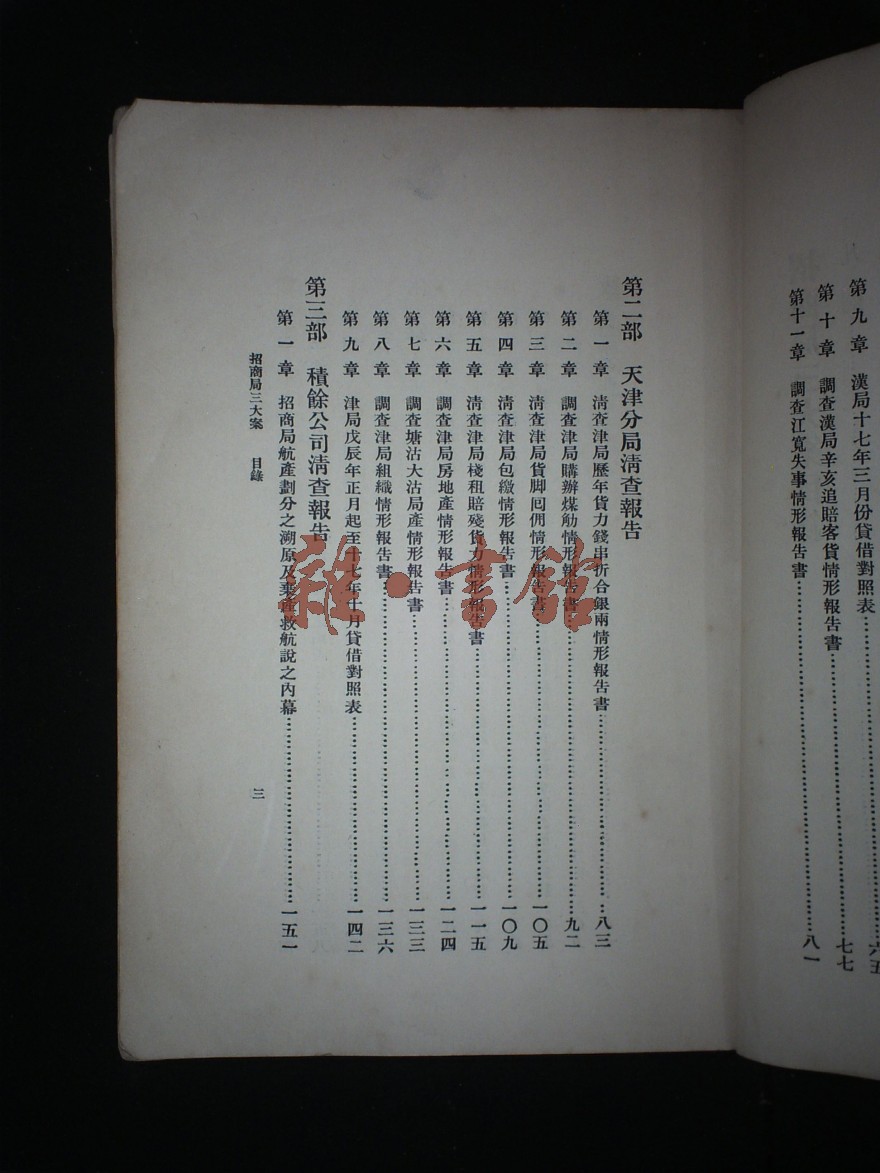 第九章　漢局十七年三月份貸借對照表……六五
第十章　調查漢局辛亥追賠客貨情形報告書……七七
第十一章　調查江寬失事情形報告書……八一
第二部　天津分局清查報告
第一章　清查津局歷年貨力錢串折合銀兩情形報告書……八三
第二章　調查津局購辦煤觔情形報告書……九二
第三章　清查津局貨脚囘佣情形報告書……一〇五
第四章　清查津局包繳情形報告書……一〇九
第五章　清查津局棧租賠殘貨力情形報告書……一一五
第六章　調查津局房地產情形報告書……一二四
第七章　調查塘沽大沽局產情形報告書……一三三
第八章　調查津局組織情形報告書……一三六
第九章　津局戊辰年正月起至十七年十月貸借對照表……一四二
第三部　積餘公司清查報告
第一章　招商局航產劃分之溯原及棄產救航說之內幕……一五一
招商局三大案　目錄　三
雜·書館